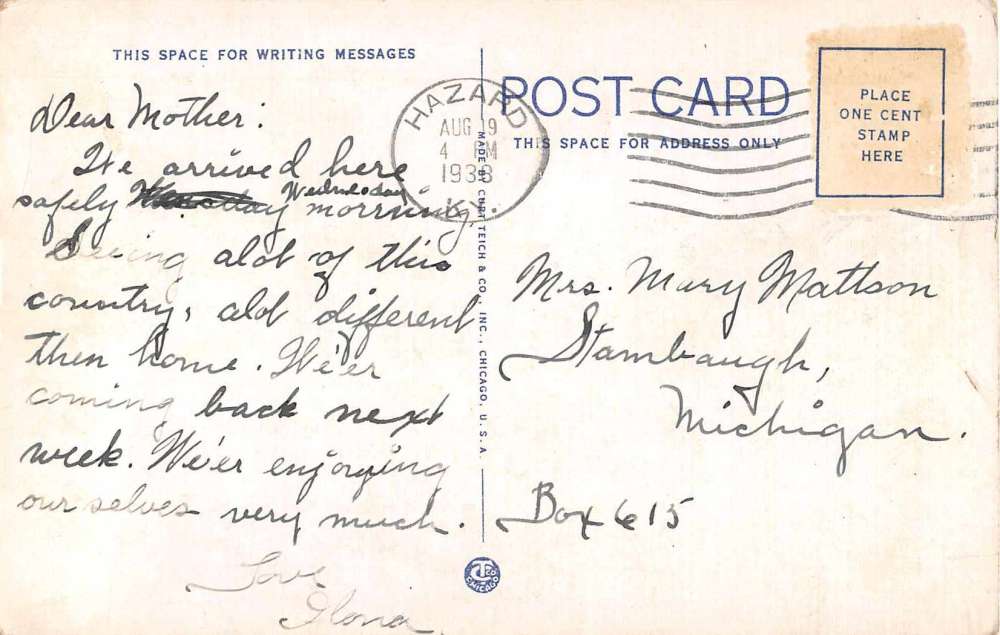 THIS SPACE FOR WRITING MESSAGES
Dear Mother:
We arrived here
safely Wednesday morning,
Seeing alot of this
country, alot different
then home. We'er
coming back next
week. We'er enjoying
our selves very much.
Love
Ilona
HAZARD
AUG 19
4 PM
1938
KY.
MADE BY CURT TEICH & CO., INC., CHICAGO, U.S.A.
C.T. CO. CHICAGO
POST CARD
THIS SPACE FOR ADDRESS ONLY
PLACE
ONE CENT
STAMP
HERE
Mrs. Mary Mattson
Stambaugh,
Michigan.
Box 615